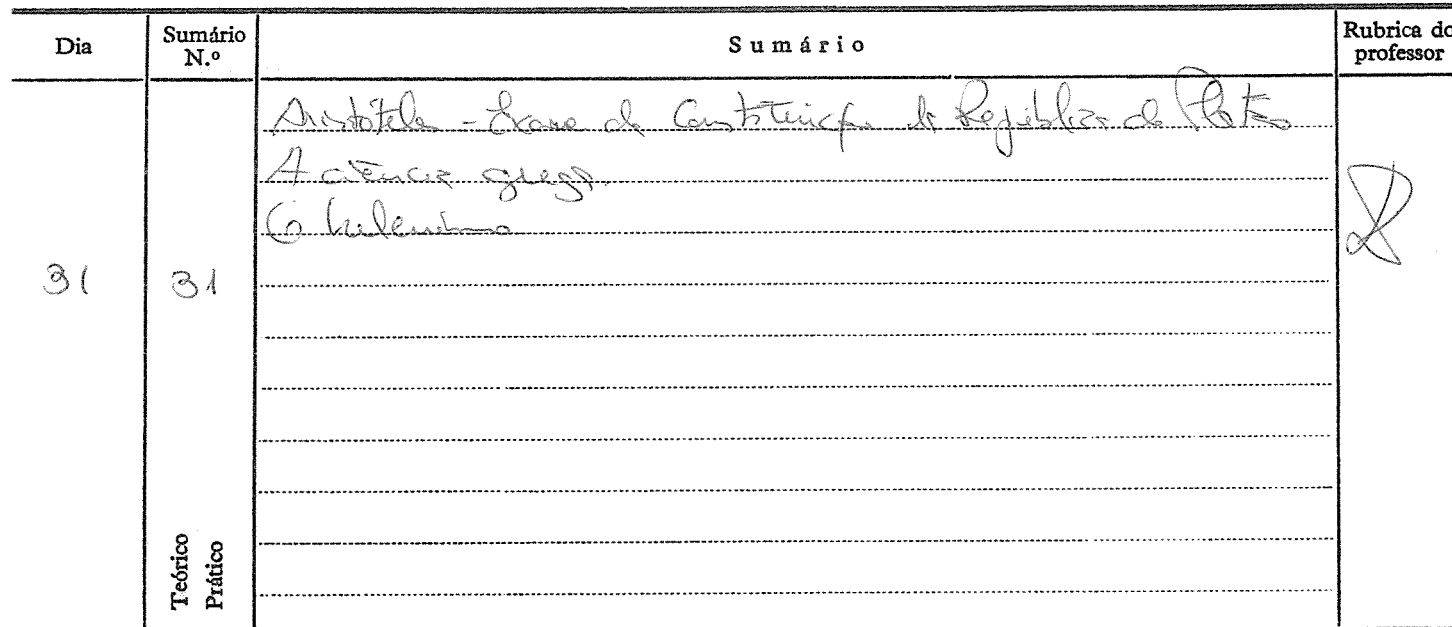 Dia
Sumário N.º
Sumário
Rubrica do professor
Aristóteles - Exame da Constituição da República de Platão
A ciência grega.
O helenismo
31
31
Teórico
Prático